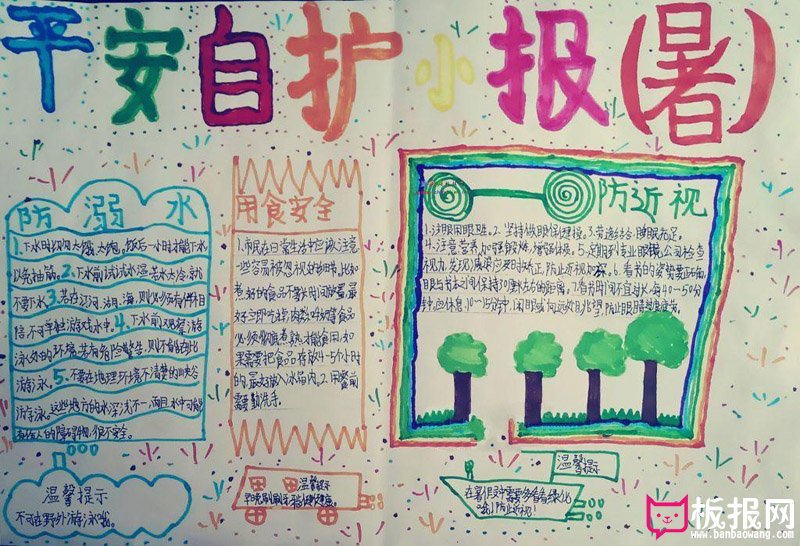 平安自护小报(暑)
防溺水
1.下水时切勿太饿、太饱。饭后一小时才能下水
以免抽筋。2.下水前试试水温,若水太冷,就
不要下水。3.若在江河、湖、海,则必须有伴相
陪不可单独游戏水中。4.下水前观察游
泳处的环境,若有危险警告,则不能在此
游泳。5.不要在地理环境不清楚的峡谷
游泳。这些地方的水深浅不一,而且水中可能
有伤人的障碍物,很不安全。
温馨提示
不可在野外游泳哦。
用食安全
1.市民在日常生活中应该注意
一些容易被忽视的细节,比如
煮好的食品不要长时间放置,最
好立即吃掉肉类、
必须彻底煮熟才能食用,如
果需要把食品存放4-5个小时
的,最好放入冰箱内。2.用餐前
需要勤洗手。
温馨提示
防近视
1.注明用眼 2.坚持做眼保健操。3.营造 睡眠充足。
4.注意营养,加强锻炼,增强体格。5.定期到专业眼镜公司检查
视力,发现减 应及时矫正,防止近视加深。6.看书的姿势要正确
眼与书本之间保持30厘米左右的距离。7.看书时间不宜过长,每40-50分
钟应休息10-15分钟。闭眼或向远处眺望,防止眼睛过度疲劳。
温馨提示
在暑假中需要多看看绿化
哦!防止近视!
板报网
www.banbaowang.com